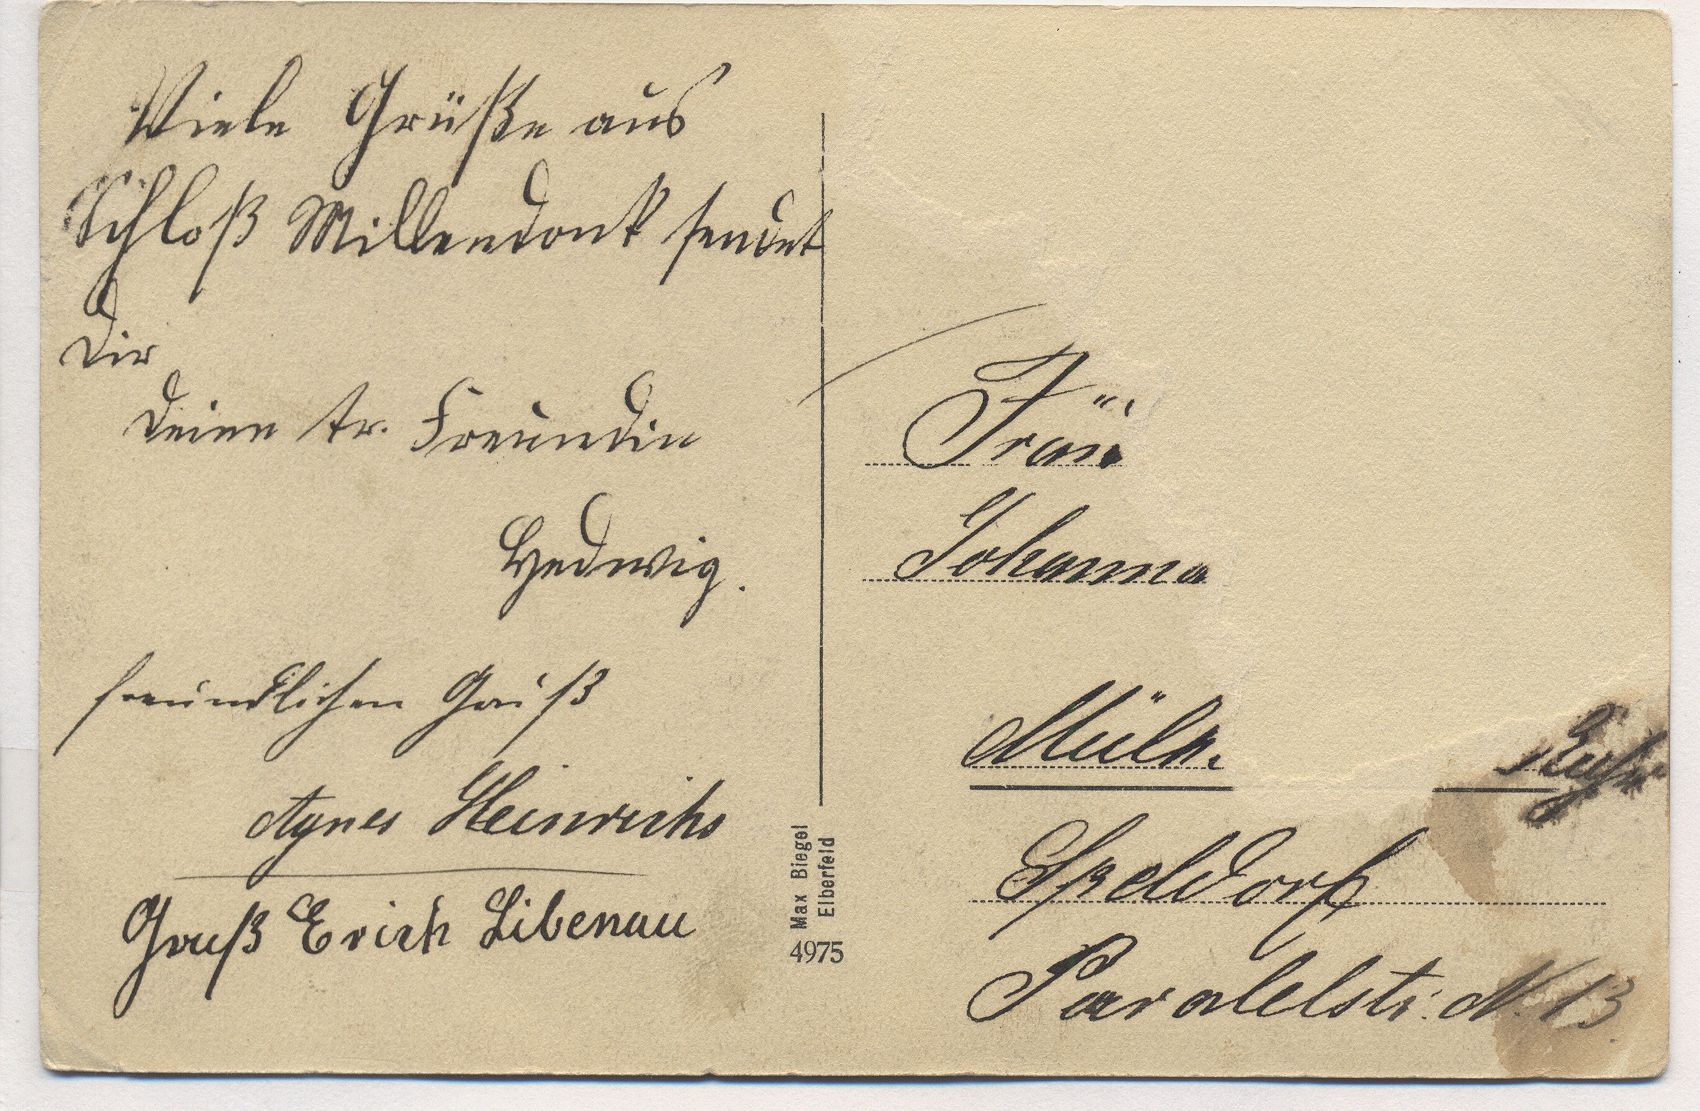 Viele Grüße aus
Schloß Millendonk sendet
Dir
Deine tr. Freundin
Hedwig.
freundlichen Gruß
Agnes Heinrichs
Gruß Erich Libenau
Max Biegel
Elberfeld
4975
Frau
Johanna
Mülh. Ruhr
Speldorf
Paralelstr. N. 13